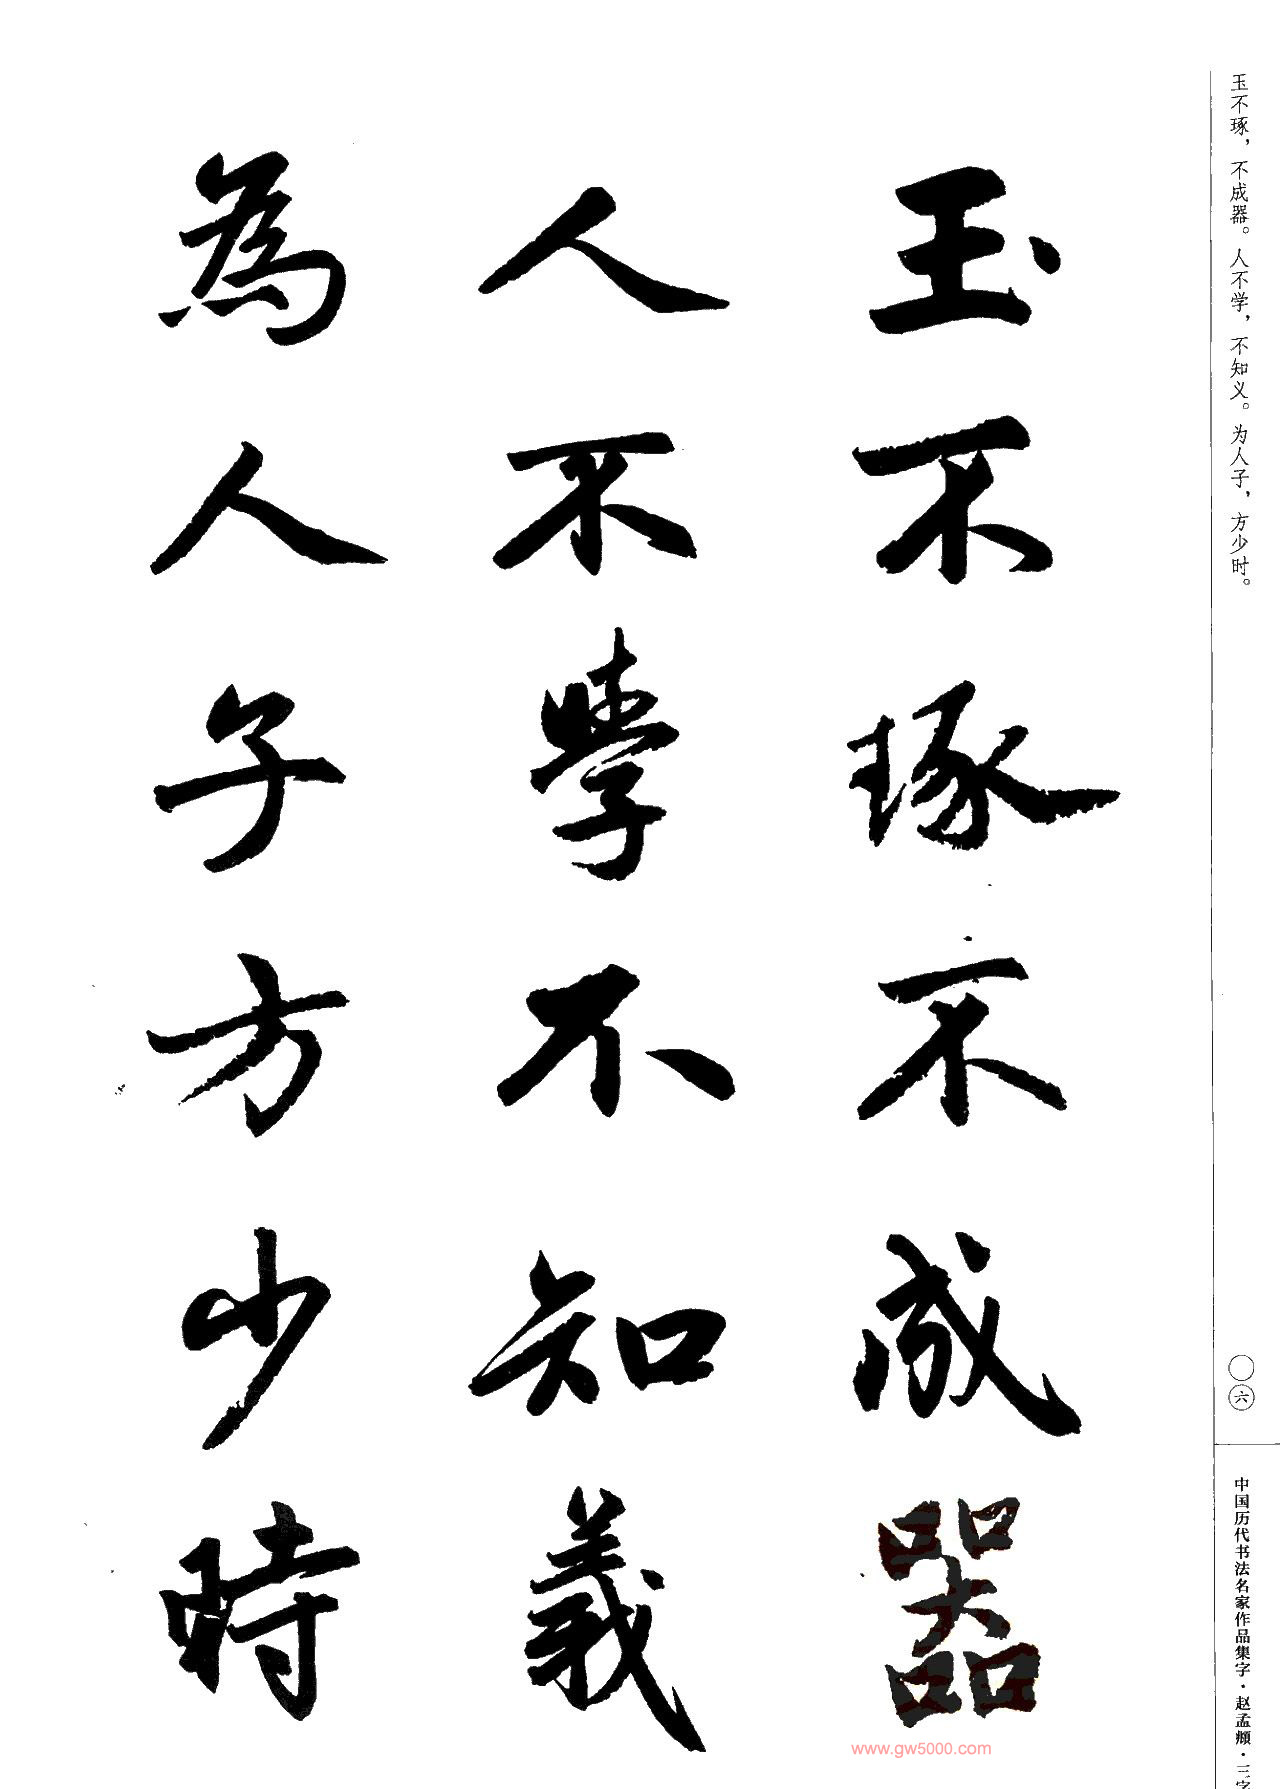 玉不琢，不成器。人不学，不知义。为人子，方少时。
玉不琢不成器
人不學不知義
為人子方少時
〇六
中国历代书法名家作品集字·赵孟頫·三字
www.gw5000.com